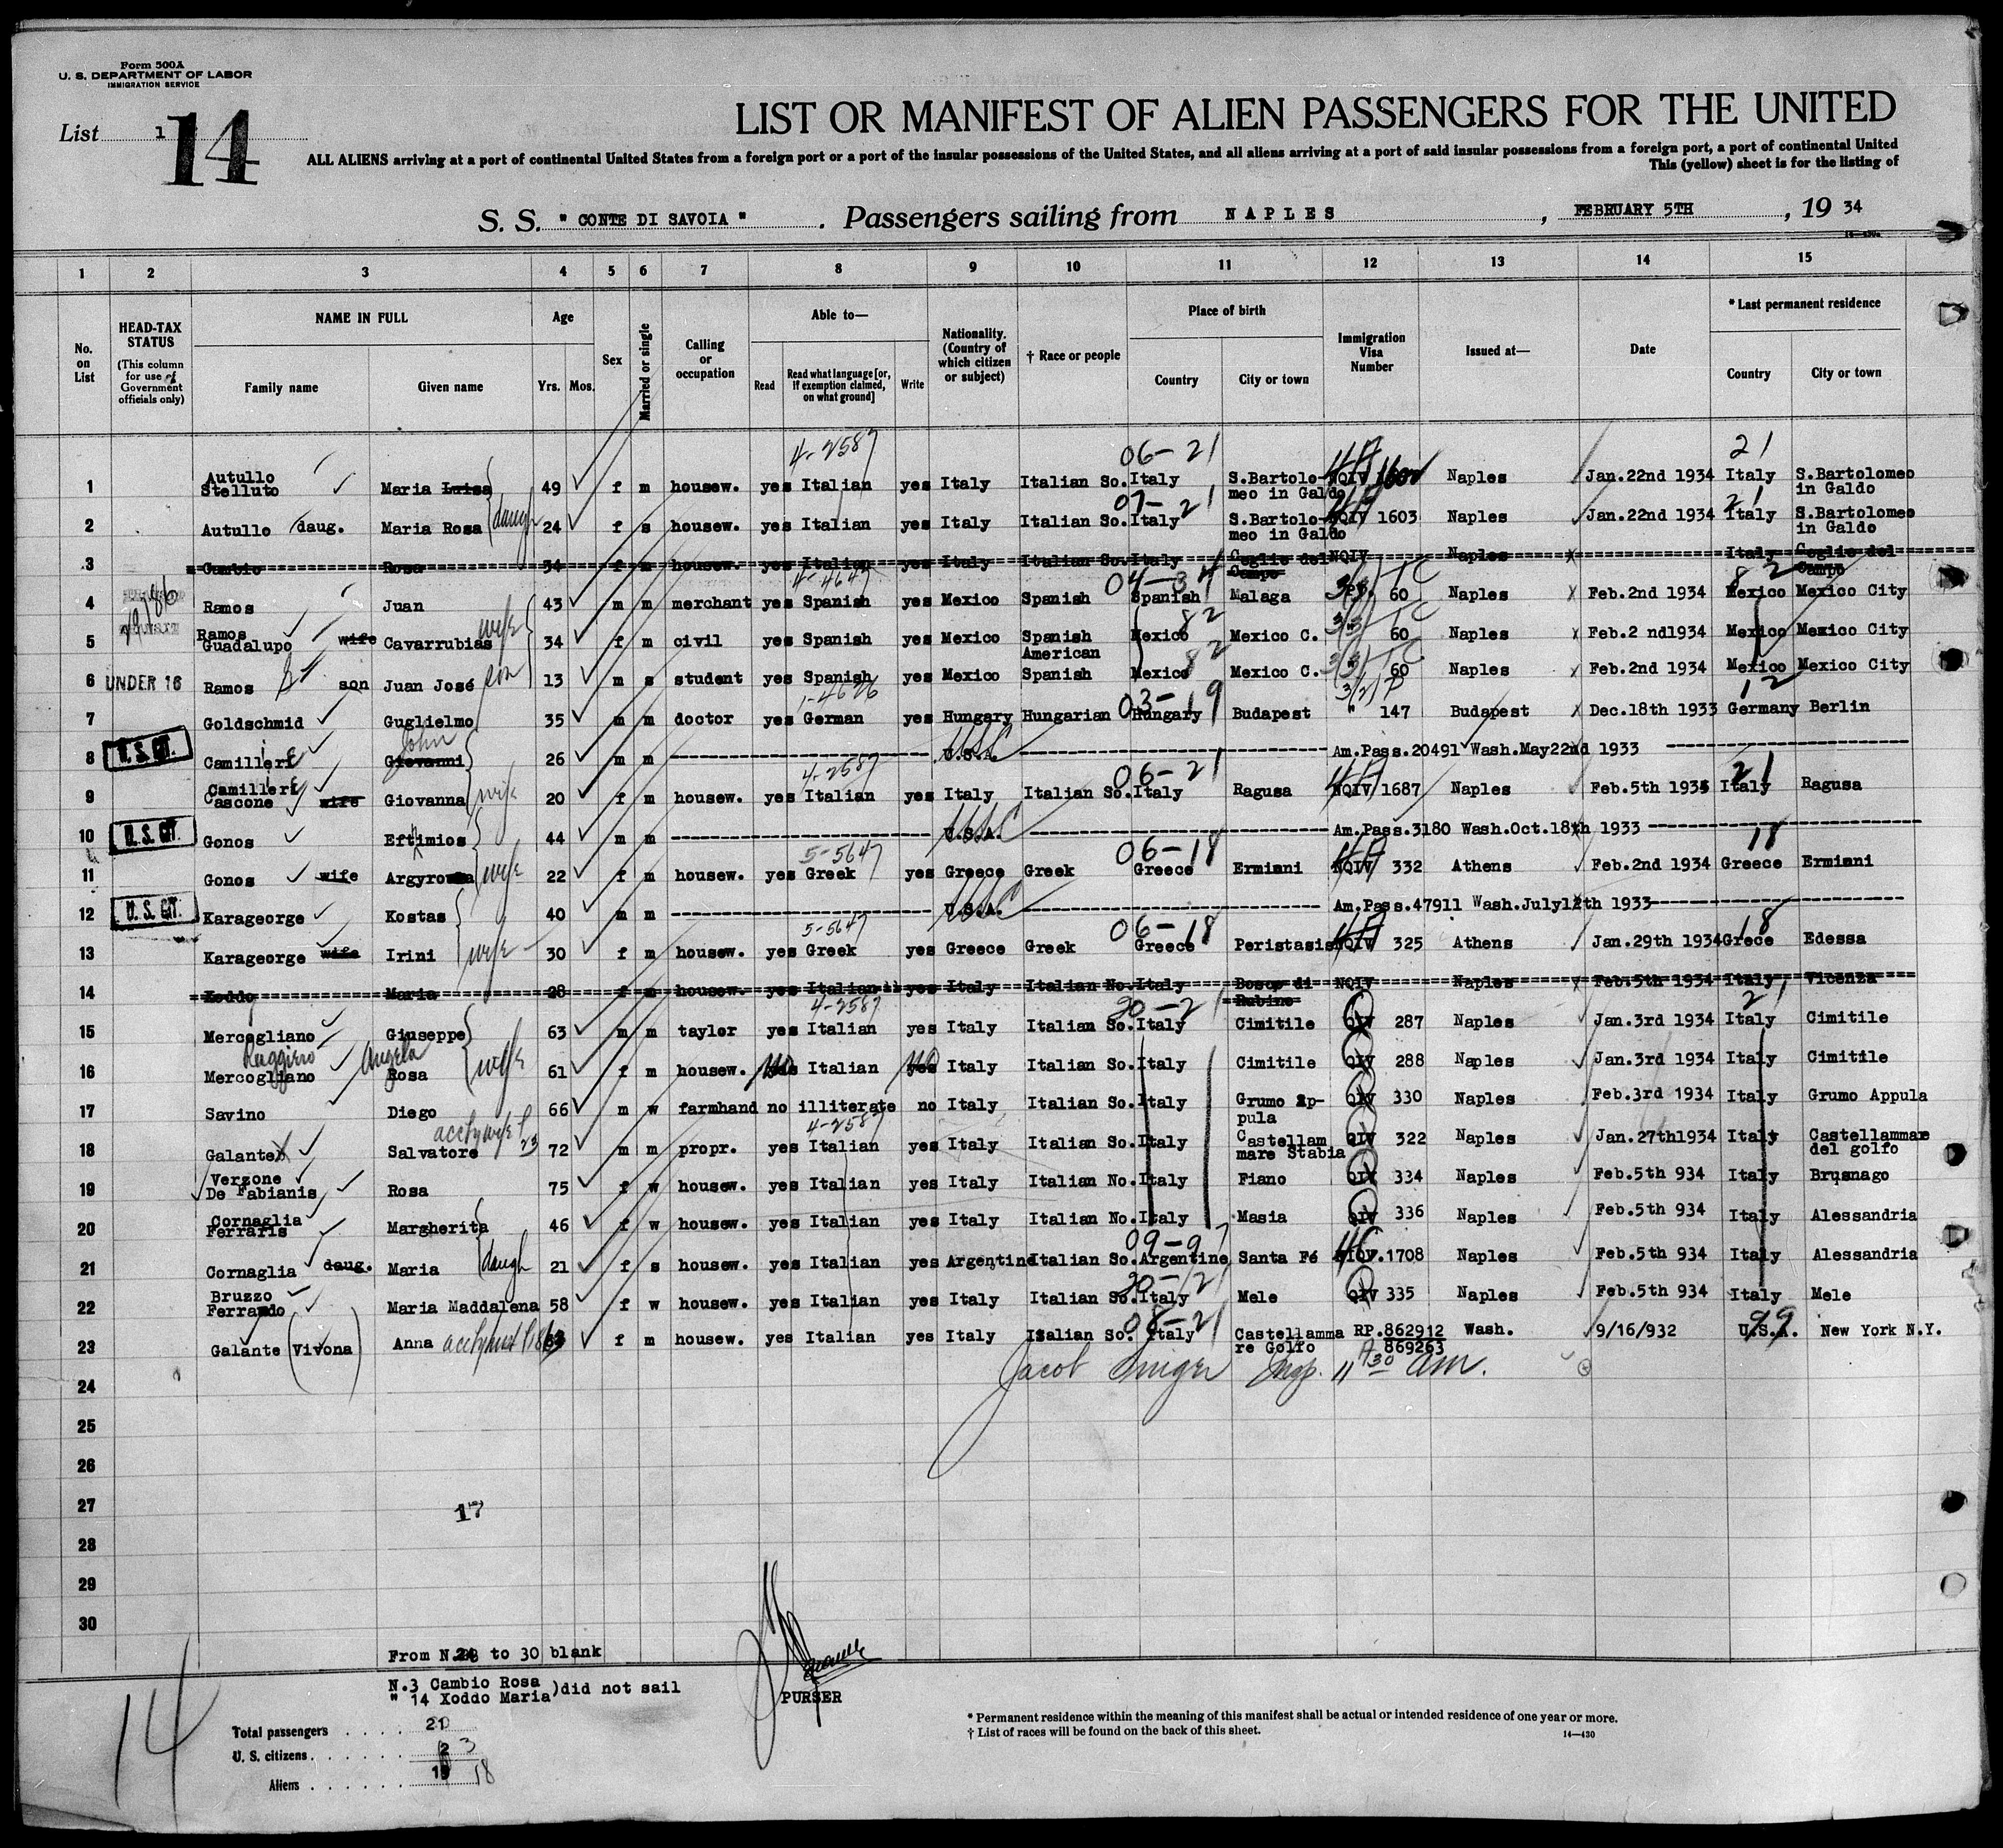 Form 500A
U. S. DEPARTMENT OF LABOR
IMMIGRATION SERVICE
List 1 14
LIST OR MANIFEST OF ALIEN PASSENGERS FOR THE UNITED
ALL ALIENS arriving at a port of continental United States from a foreign port or a port of the insular possessions of the United States, and all aliens arriving at a port of said insular possessions from a foreign port, a port of continental United
This (yellow) sheet is for the listing of
S. S. " CONTE DI SAVOIA " . Passengers sailing from NAPLES , FEBRUARY 5TH , 19 34
1 2 3 4 5 6 7 8 9 10 11 12 13 14 15
No. on List
HEAD-TAX STATUS (This column for use of Government officials only)
NAME IN FULL Family name Given name
Age Yrs. Mos.
Sex
Married or single
Calling or occupation
Able to— Read Read what language [or, if exemption claimed, on what ground] Write
Nationality. (Country of which citizen or subject)
† Race or people
Place of birth Country City or town
Immigration Visa Number
Issued at—
Date
* Last permanent residence Country City or town
4-2587 06-21 21
1 Autullo Stelluto Maria Luisa 49 f m housew. yes Italian yes Italy Italian So. Italy S.Bartolo-meo in Galdo NQIV 1602 Naples Jan.22nd 1934 Italy S.Bartolomeo in Galdo
07-21 21
2 Autullo daug. Maria Rosa daugh 24 f s housew. yes Italian yes Italy Italian So. Italy S.Bartolo-meo in Galdo NQIV 1603 Naples Jan.22nd 1934 Italy S.Bartolomeo in Galdo
3 Cambio Rosa 54 f m housew. yes Italian yes Italy Italian So. Italy Ceglie del Campo NQIV Naples Italy Ceglie del Campo
4-4647 04-34 82
4 Ramos Juan 43 m m merchant yes Spanish yes Mexico Spanish Spanish Malaga 60 Naples Feb.2nd 1934 Mexico Mexico City
82
5 Ramos Guadalupo wife Cavarrubias wife 34 f m civil yes Spanish yes Mexico Spanish American Mexico Mexico C. 60 Naples Feb.2 nd1934 Mexico Mexico City
82
6 UNDER 16 Ramos son Juan José son 13 m s student yes Spanish yes Mexico Spanish Mexico Mexico C. 60 Naples Feb.2nd 1934 Mexico Mexico City
1-4626 03-19 12
7 Goldschmid Guglielmo 35 m m doctor yes German yes Hungary Hungarian Hungary Budapest " 147 Budapest Dec.18th 1933 Germany Berlin
8 U.S.CIT. Camilleri Giovanni John 26 m m U.S.A. USC Am.Pass.20491 Wash.May22nd 1933
4-2587 06-21 21
9 Camilleri Cascone wife Giovanna wife 20 f m housew. yes Italian yes Italy Italian So. Italy Ragusa NQIV 1687 Naples Feb.5th 1935 Italy Ragusa
10 U.S.CIT. Gonos Eftimios 44 m m U.S.A. USC Am.Pass.3180 Wash.Oct.18th 1933
5-5647 06-18 18
11 Gonos wife wife 22 f m housew. yes Greek yes Greece Greek Greece Ermiani NQIV 332 Athens Feb.2nd 1934 Greece Ermiani
12 U.S.CIT. Karageorge Kostas 40 m m U.S.A. USC Am.Pass.47911 Wash.July12th 1933
5-5647 06-18 18
13 Karageorge wife Irini wife 30 f m housew. yes Greek yes Greece Greek Greece Peristasis NQIV 325 Athens Jan.29th 1934 Grece Edessa
14 Xoddo Maria 28 f m housew. yes Italian yes Italy Italian No. Italy Bosco di Rubino NQIV Naples Feb.5th 1934 Italy Vicenza
4-2587 20-21 21
15 Mercogliano Giuseppe 63 m m taylor yes Italian yes Italy Italian So. Italy Cimitile QIV 287 Naples Jan.3rd 1934 Italy Cimitile
16 Ruggiero Mercogliano Angela Rosa wife 61 f m housew. no Italian no Italy Italian So. Italy Cimitile QIV 288 Naples Jan.3rd 1934 Italy Cimitile
17 Savino Diego 66 m w farmhand no illiterate no Italy Italian So. Italy Grumo Ap-pula QIV 330 Naples Feb.3rd 1934 Italy Grumo Appula
4-2587
18 Galante Salvatore 23 72 m m propr. yes Italian yes Italy Italian So. Italy Castellam mare Stabia QIV 322 Naples Jan.27th1934 Italy Castellammare del golfo
19 Verzone De Fabianis Rosa 75 f w housew. yes Italian yes Italy Italian No. Italy Fiano QIV 334 Naples Feb.5th 934 Italy Brusnago
20 Cornaglia Ferraris Margherita 46 f w housew. yes Italian yes Italy Italian No. Italy Masia QIV 336 Naples Feb.5th 934 Italy Alessandria
09-91
21 Cornaglia daug. Maria daugh 21 f s housew. yes Italian yes Argentine Italian So. Argentine Santa Fé NQIV.1708 Naples Feb.5th 934 Italy Alessandria
20-21
22 Bruzzo Ferrando Maria Maddalena 58 f w housew. yes Italian yes Italy Italian So. Italy Mele QIV 335 Naples Feb.5th 934 Italy Mele
08-21 99
23 Galante (Vivona) Anna 63 f m housew. yes Italian yes Italy Italian So. Italy Castellamma re Golfo RP.862912 A 869263 Wash. 9/16/932 U.S.A. New York N.Y.
24 Jacob Insp. 11 30 am.
25
26
27 17
28
29
30
From N.24 to 30 blank
N.3 Cambio Rosa
" 14 Xoddo Maria )did not sail
PURSER
14
Total passengers . . . . 21
U. S. citizens . . . . . . 2 3
Aliens . . . . . . 19 18
* Permanent residence within the meaning of this manifest shall be actual or intended residence of one year or more.
† List of races will be found on the back of this sheet.
14—430